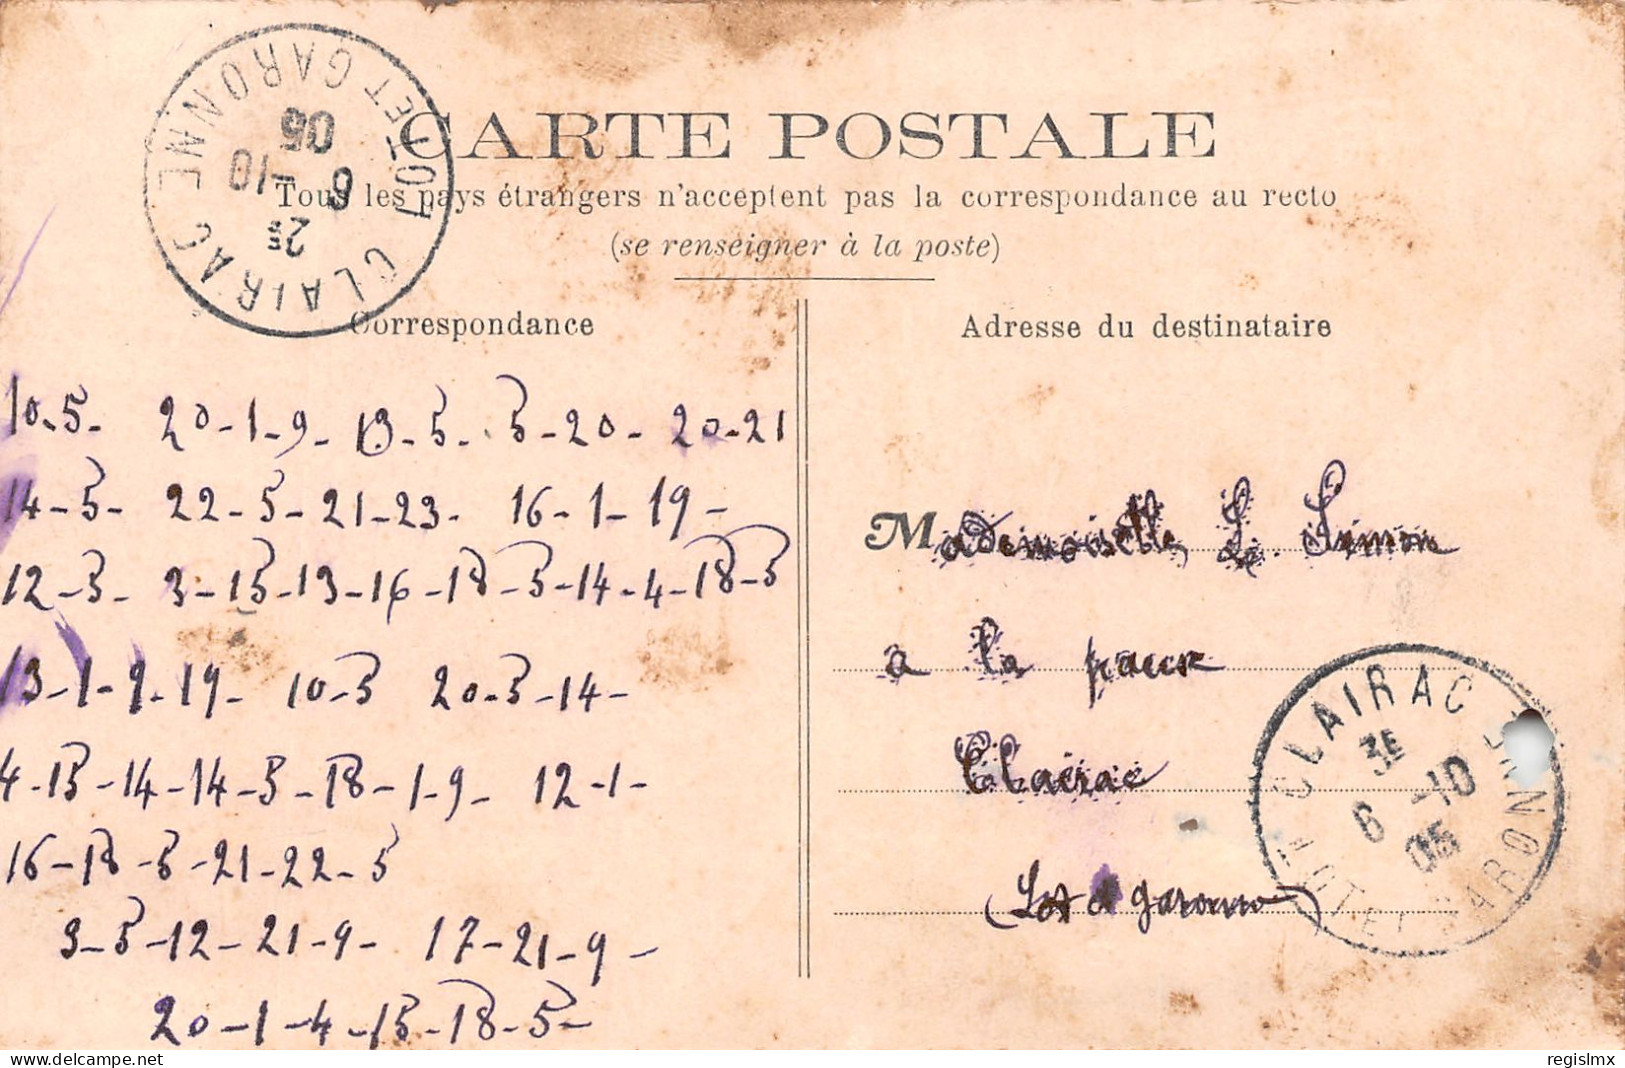 CARTE POSTALE
Tous les pays étrangers n'acceptent pas la correspondance au recto
(se renseigner à la poste)
CLAIRAC LOT ET GARONNE
2E
6 -10
05
Correspondance
10-5- 20-1-9-13-5-5-20-20-21
14-5- 22-5-21-23- 16-1-19-
12-5- 3-15-13-16-18-5-14-4-18-5
13-1-9-19- 10-5 20-5-14-
4-15-14-14-5-18-1-9- 12-1-
16-18-5-21-22-5
3-5-12-21-9- 17-21-9-
20-1-4-15-18-5-
Adresse du destinataire
Mademoiselle L. Simon
a la
Clairac
(Lot et Garonne)
CLAIRAC LOT ET GARONNE
3E
6 -10
05
regislmx